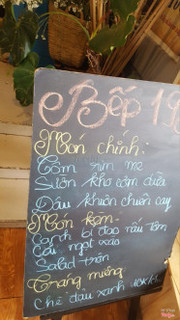 Bếp 19
Món chính:
Tôm rim me
Sườn kho cơm dừa
Đậu khuôn chiên cay
Món kèm:
Canh bí đao nấu tôm
Cải ngọt xào
Salad trộn
Tráng miệng
Chè đậu xanh